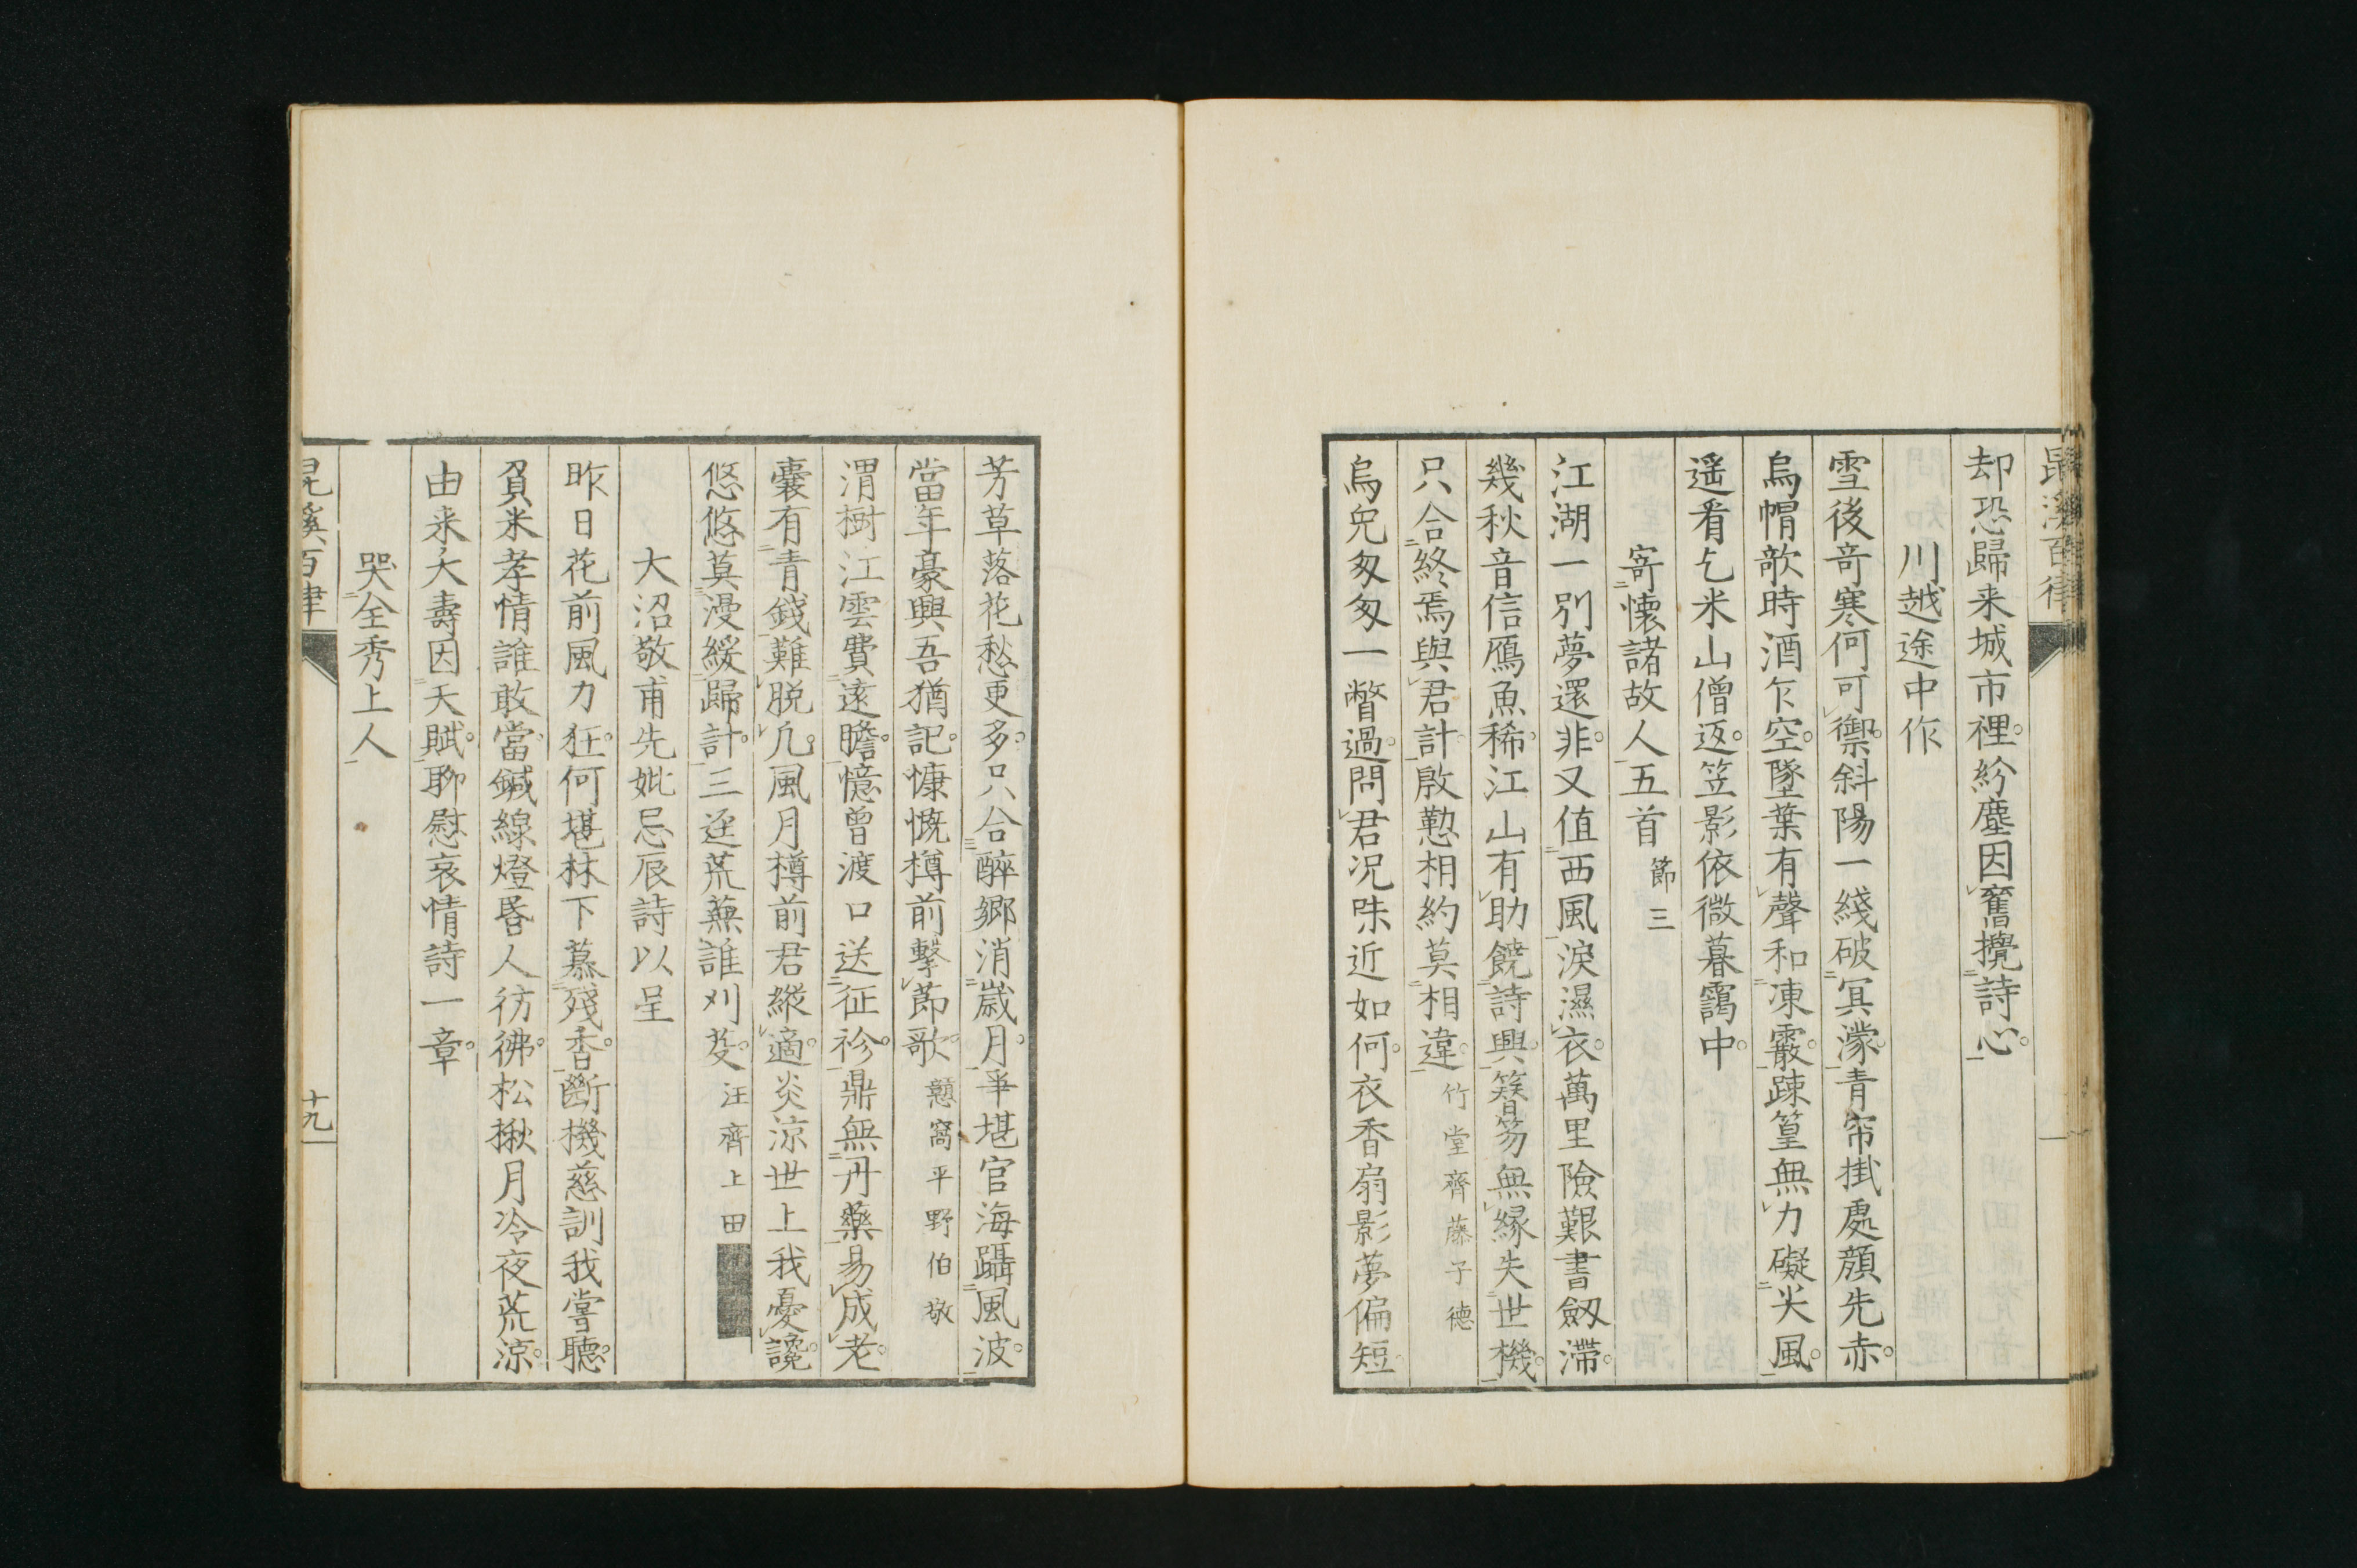 晁溪百律
却恐歸来城市裡紛塵因舊攪詩心
川越途中作
雪後竒寒何可禦斜陽一綫破冥濛青帘掛處顏先赤
烏帽欹時酒乍空墜葉有聲和凍霰踈篁無力礙尖風
遥看乞米山僧返笠影依微暮靄中
寄懐諸故人五首 節三
江湖一別夢還非又值西風淚濕衣萬里險艱書劔滯
幾秋音信鴈魚稀江山有助饒詩興簪笏無縁失世機
只合終焉與君計殷懃相約莫相違 竹堂齊藤子德
烏兔匆匆一瞥過問君况味近如何衣香扇影夢偏短
芳草落花愁更多只合醉郷消歳月爭堪官海躡風波
當年豪興吾猶記慷慨樽前擊莭歌 窩平野伯敬
渭樹江雲費遠瞻憶曾渡口送征衫鼎無丹藥易成老
囊有青錢難脱凢風月樽前君縱適炎涼世上我憂讒
悠悠莫漫緩歸計三逕荒蕪誰刈芟 汪齊上田
大沼敬甫先妣忌辰詩以呈
昨日花前風力狂何堪林下慕殘香斷機慈訓我嘗聽
負米孝情誰敢當鍼線燈昏人彷彿松楸月冷夜荒涼
由来大壽因天賦聊慰哀情詩一章
哭全秀上人
晁溪百律
十九